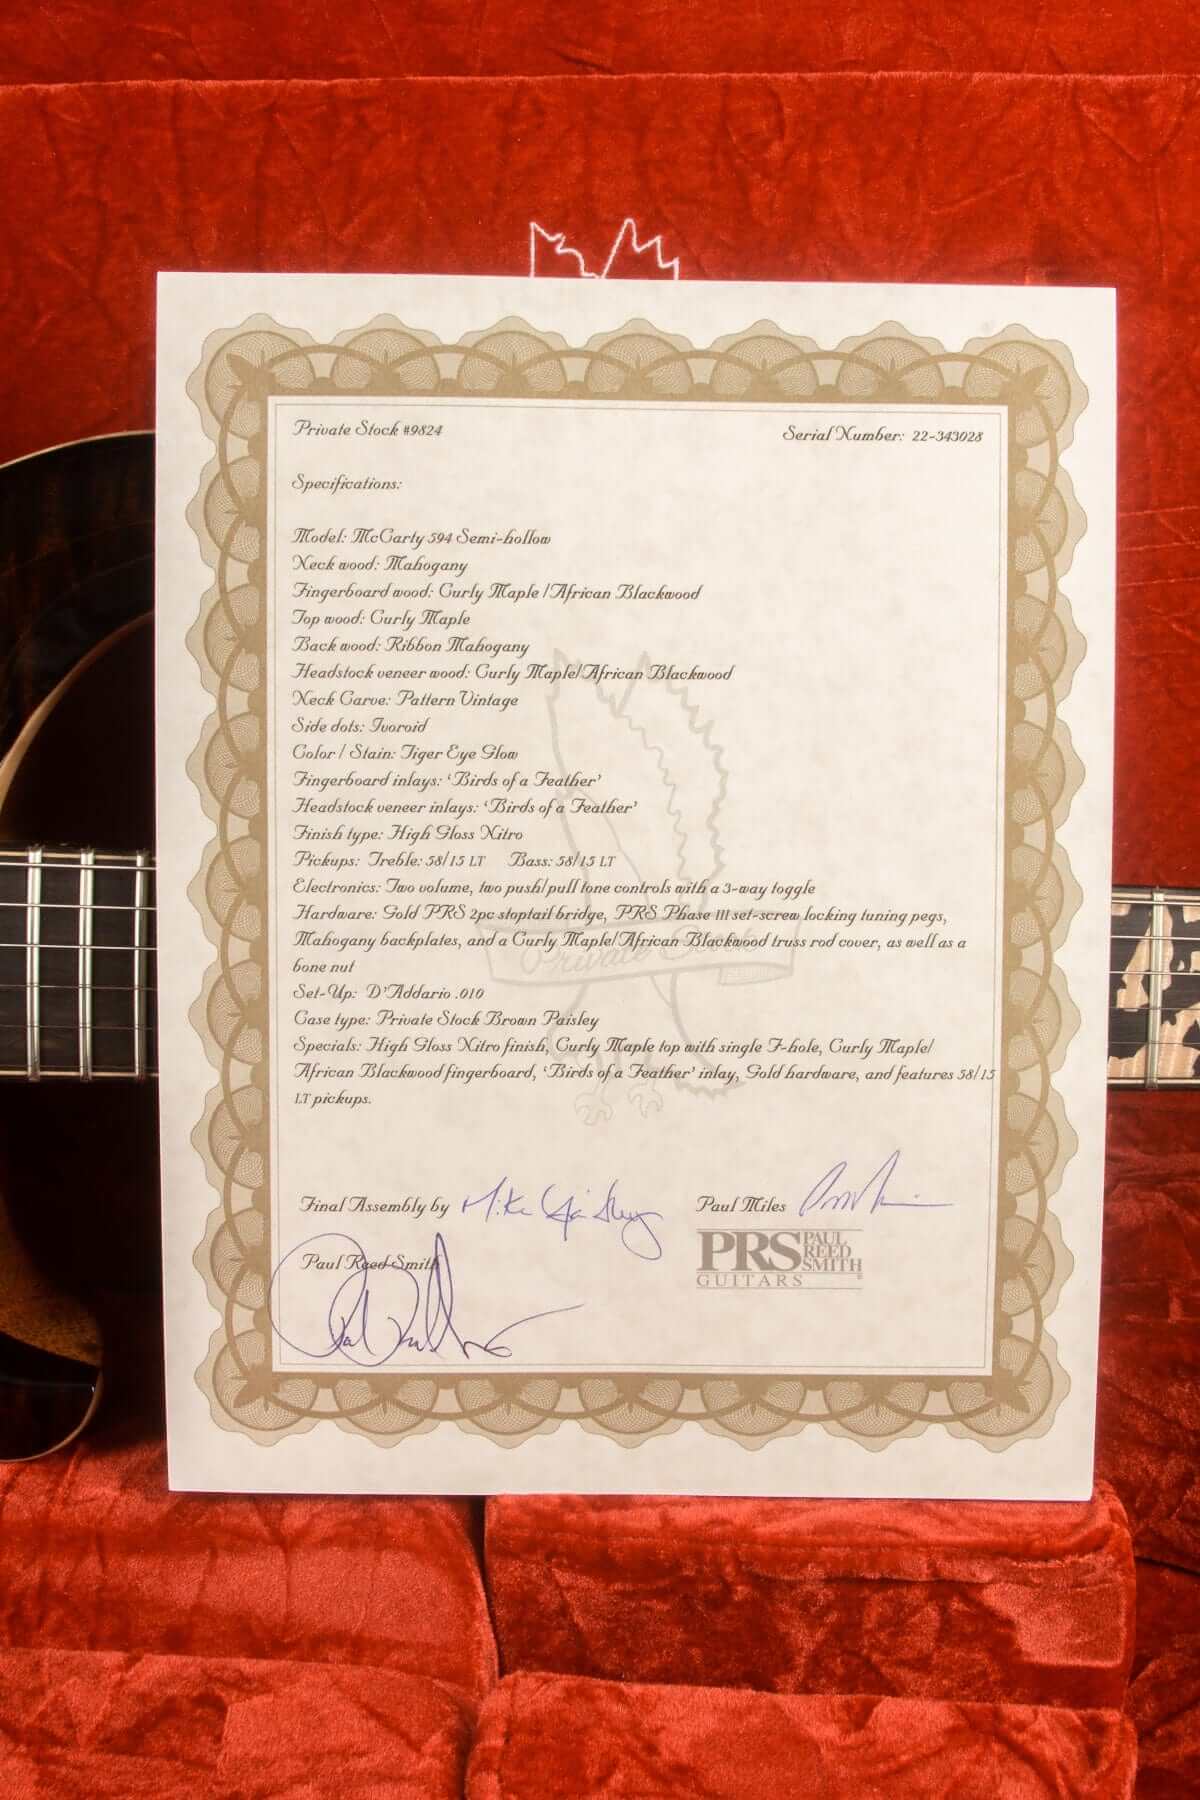 Private Stock #9824
Serial Number: 22-343028
Specifications:
Model: McCarty 594 Semi-hollow
Neck wood: Mahogany
Fingerboard wood: Curly Maple /African Blackwood
Top wood: Curly Maple
Back wood: Ribbon Mahogany
Headstock veneer wood: Curly Maple/African Blackwood
Neck Carve: Pattern Vintage
Side dots: Ivoroid
Color / Stain: Tiger Eye Glow
Fingerboard inlays: ‘Birds of a Feather’
Headstock veneer inlays: ‘Birds of a Feather’
Finish type: High Gloss Nitro
Pickups: Treble: 58/15 LT Bass: 58/15 LT
Electronics: Two volume, two push/pull tone controls with a 3-way toggle
Hardware: Gold PRS 2pc stoptail bridge, PRS Phase III set-screw locking tuning pegs,
Mahogany backplates, and a Curly Maple/African Blackwood truss rod cover, as well as a
bone nut
Private Stock
Set-Up: D'Addario .010
Case type: Private Stock Brown Paisley
Specials: High Gloss Nitro finish, Curly Maple top with single F-hole, Curly Maple/
African Blackwood fingerboard, ‘Birds of a Feather’ inlay, Gold hardware, and features 58/15
LT pickups.
Final Assembly by Mike
Paul Miles
Paul Reed Smith
PRS PAUL REED SMITH
GUITARS